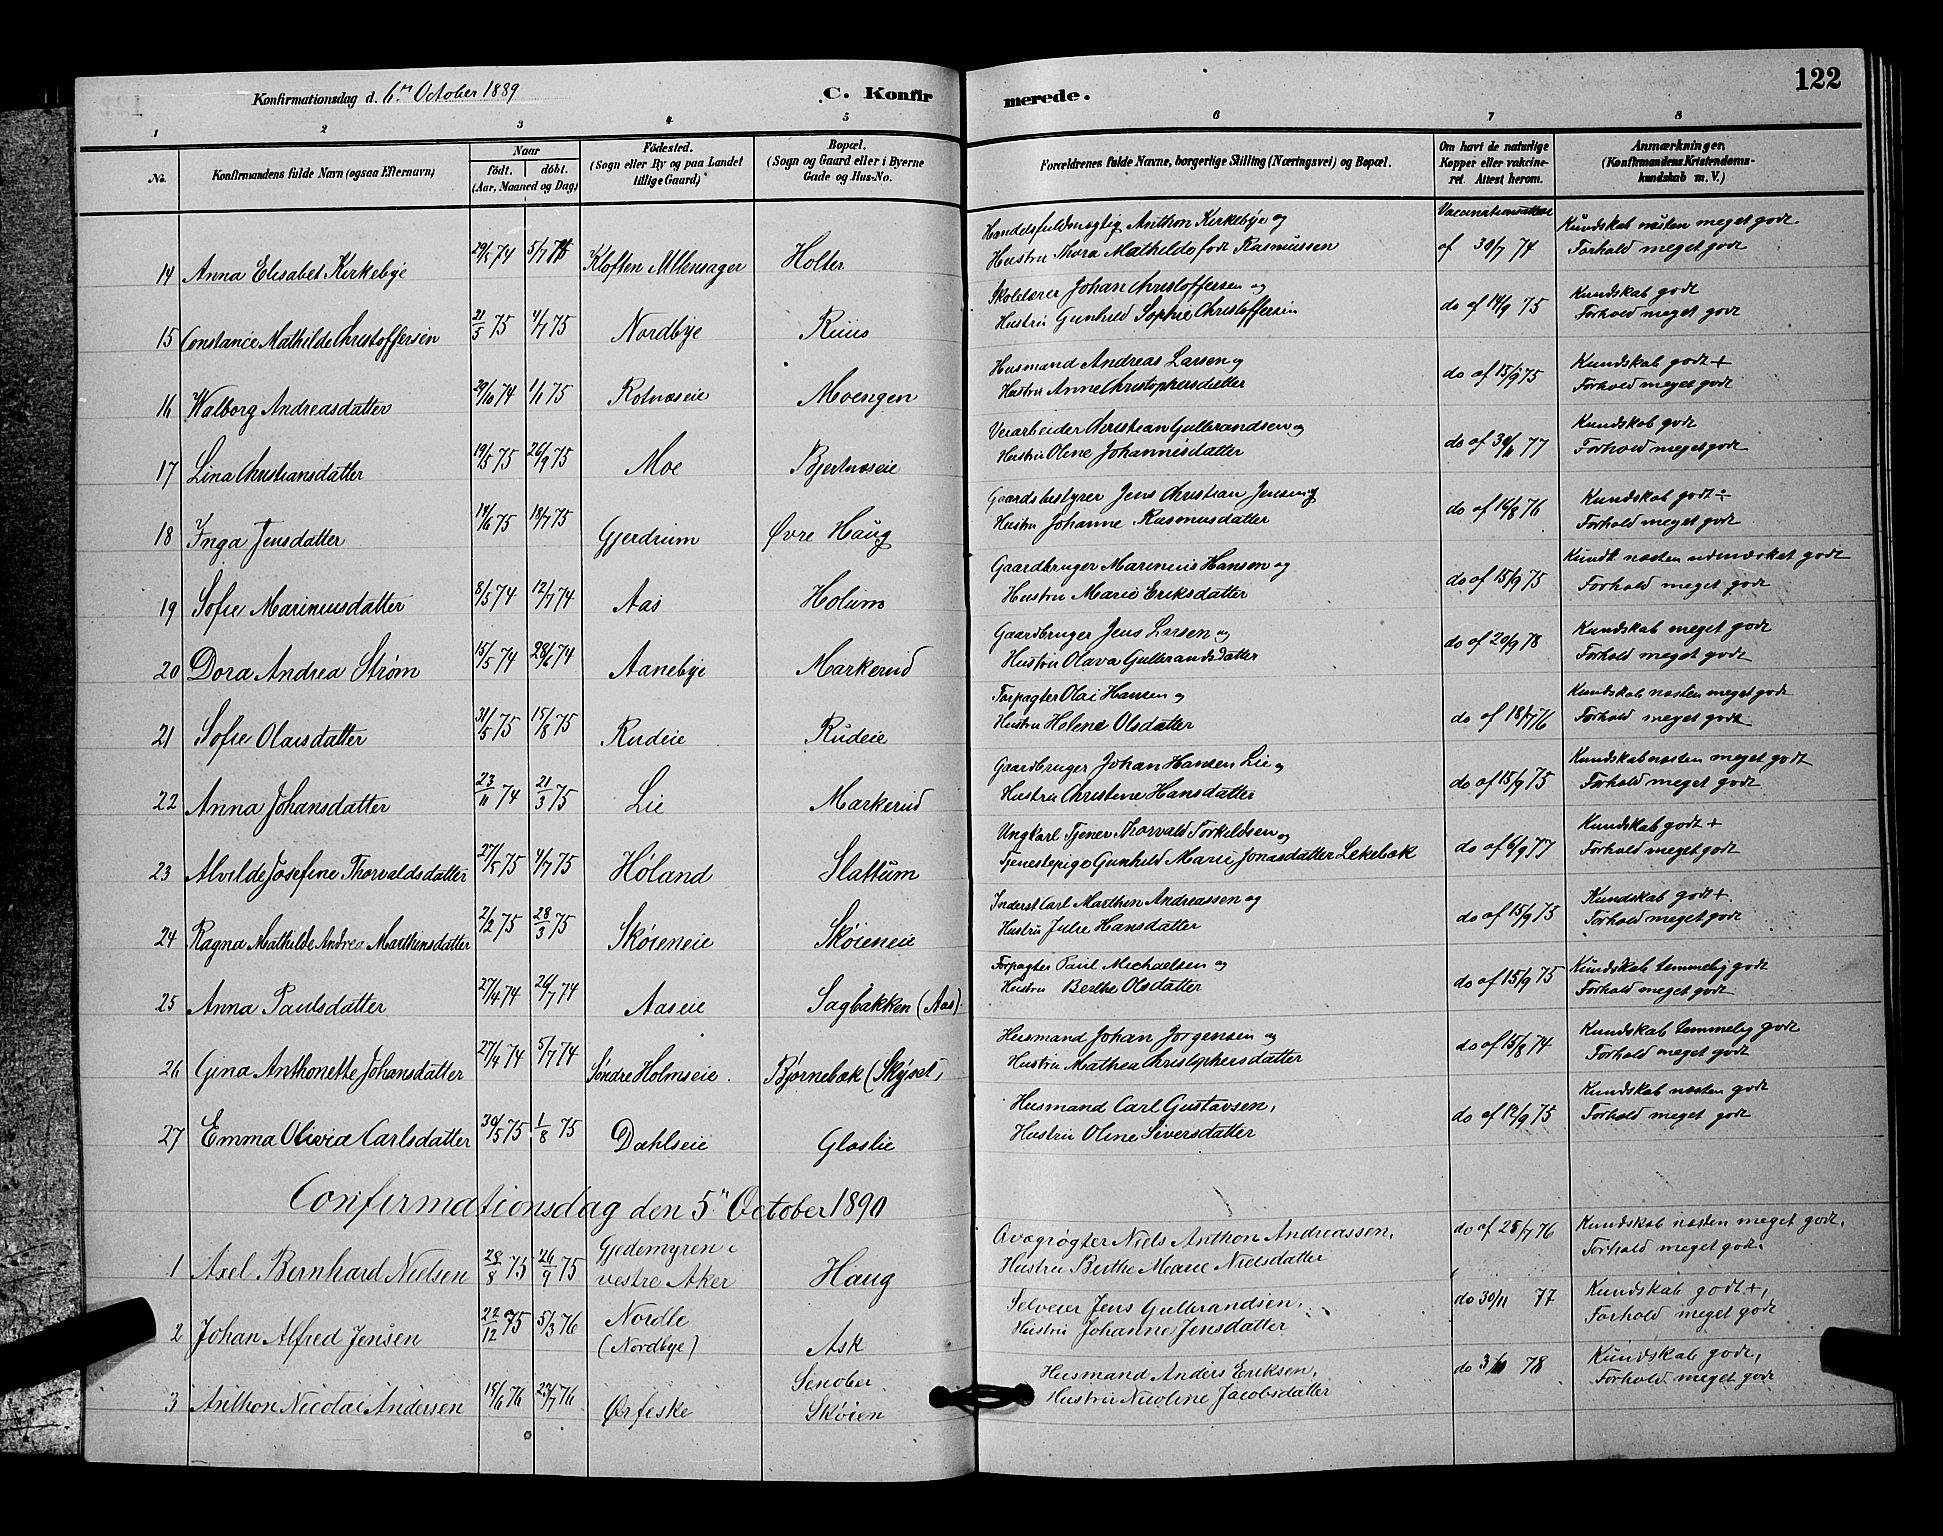 122
Konfirmationsdag d. 6te October 1889
C. Konfirmerede.
1 2 3 4 5 6 7 8
No.
Konfirmandens fulde Navn (ogsaa Efternavn)
Naar
födt. döbt.
(Aar, Maaned og Dag)
Födested.
(Sogn eller By og paa Landet
tillige Gaard)
Bopæl.
(Sogn og Gaard eller i Byerne
Gade og Hus-No.
Forældrenes fulde Navne, borgerlige Stilling (Næringsvei) og Bopæl.
Om havt de naturlige
Kopper eller vakcine-
ret. Attest herom.
Anmærkninger.
(Konfirmandens Kristendoms-
kundskab m. V.)
Handelsfuldmægtig Anthon Kirkebye og Vaccinationsattest Kundskab næsten meget godt.
14 Anna Elisabet Kirkebye 29/5 74 5/7 74 Kloften Ullensager Holter Hustru Thora Mathilde født Rasmussen af 30/7 74 Forhold meget godt
Skolelærer Johan Christoffersen og Kundskab godt
15 Constance Mathilde Christoffersen 21/3 75 4/7 75 Nordbye Ruus Hustru Gunhild Sophie Christoffersen do af 14/9 75 Forhold meget godt
Husmand Andreas Larsen og Kundskab godt +
16 Walborg Andreasdatter 29/10 74 1/1 75 Rotnæseie Moengen Hustru Anne Christophersdatter do af 15/9 75 Forhold meget godt
Veiarbeider Christian Gulbrandsen og Kundskab godt
17 Lina Christiansdatter 19/5 75 26/9 75 Moe Bjertnæseie Hustru Oline Johannesdatter do af 30/6 77 Forhold meget godt
Gaardsbestyrer Jens Christian Jensen og Kundskab godt ÷
18 Inga Jensdatter 14/6 75 18/7 75 Gjerdrum Øvre Haug Hustru Johanne Rasmusdatter do af 16/8 76 Forhold meget godt
Gaardbruger Marinius Hansen og Kundt næsten udmærket godt
19 Sofie Mariniusdatter 8/5 74 12/7 74 Aas Holum Hustru Marie Eriksdatter do af 15/9 75 Forhold meget godt
Gaardbruger Jens Larsen og Kundskab meget godt
20 Dora Andrea Strøm 15/5 74 28/6 74 Aanebye Markerud Hustru Olava Gulbrandsdatter do af 20/9 78 Forhold meget godt
Forpagter Olai Hansen og Kundskab næsten meget godt
21 Sofie Olaisdatter 31/5 75 15/8 75 Rudeie Rudeie Hustru Helene Olsdatter do af 18/7 76 Forhold meget godt
Gaardbruger Johan Hansen Lie og Kundskab næsten meget godt
22 Anna Johansdatter 23/11 74 21/3 75 Lie Markerud Hustru Christine Hansdatter do af 15/9 75 Forhold meget godt
Ungkarl Tjener Thorvald Torkildsen og Kundskab godt +
23 Alvilde Josefine Thorvaldsdatter 27/5 75 4/7 75 Høland Slattum Tjenestepige Gunhild Marie Jonasdatter Lekebæk do af 6/9 77 Forhold meget godt
Inderst Carl Marthin Andreassen og Kundskab godt +.
24 Ragna Mathilde Andrea Marthinsdatter 2/2 75 28/3 75 Skøieneie Skøieneie Hustru Julie Hansdatter do af 15/9 75 Forhold meget godt
Forpagter Paul Michaelsen og Kundskab temmelig godt
25 Anna Paulsdatter 27/4 74 26/7 74 Aaseie Sagbakken (Aas) Hustru Berthe Olsdatter do af 15/9 75 Forhold meget godt
Husmand Johan Jørgensen og Kundskab temmelig godt
26 Gina Anthonette Johansdatter 27/4 74 5/7 74 Søndre Holmseie. Bjørnebæk (Skyset) Hustru Mathea Christophersdatter do af 15/8 74 Forhold meget godt
Husmand Carl Gustavsen, Kundskab næsten godt
27 Emma Olivia Carlsdatter 30/5 75 1/8 75 Dahlseie Glaslie Hustru Oline Siversdatter do af 12/9 75 Forhold meget godt
Confirmationsdag den 5te October 1890
Gjedemyren i Qvægrøgter Niels Anthon Andreassen, do af 25/7 76 Kundskab næsten meget godt.
1 Axel Bernhard Nielsen 28/8 75 26/9 75 vestre Aker Haug Hustru Berthe Marie Nielsdatter Forhold meget godt
Nordle Selveier Jens Gulbrandsen, do 30/11 77 Kundskab godt +,
2 Johan Alfred Jensen 22/12 75 5/3 76 (Nordbye) Ask Hustru Johanne Jensdatter Forhold meget godt
Senober Husmand Anders Eriksen, do 78 Kundskab godt,
3 Anthon Nicolai Andersen 15/6 76 23/7 76 Ørfiske Skøien Hustru Nicoline Jacobsdatter Forhold meget godt